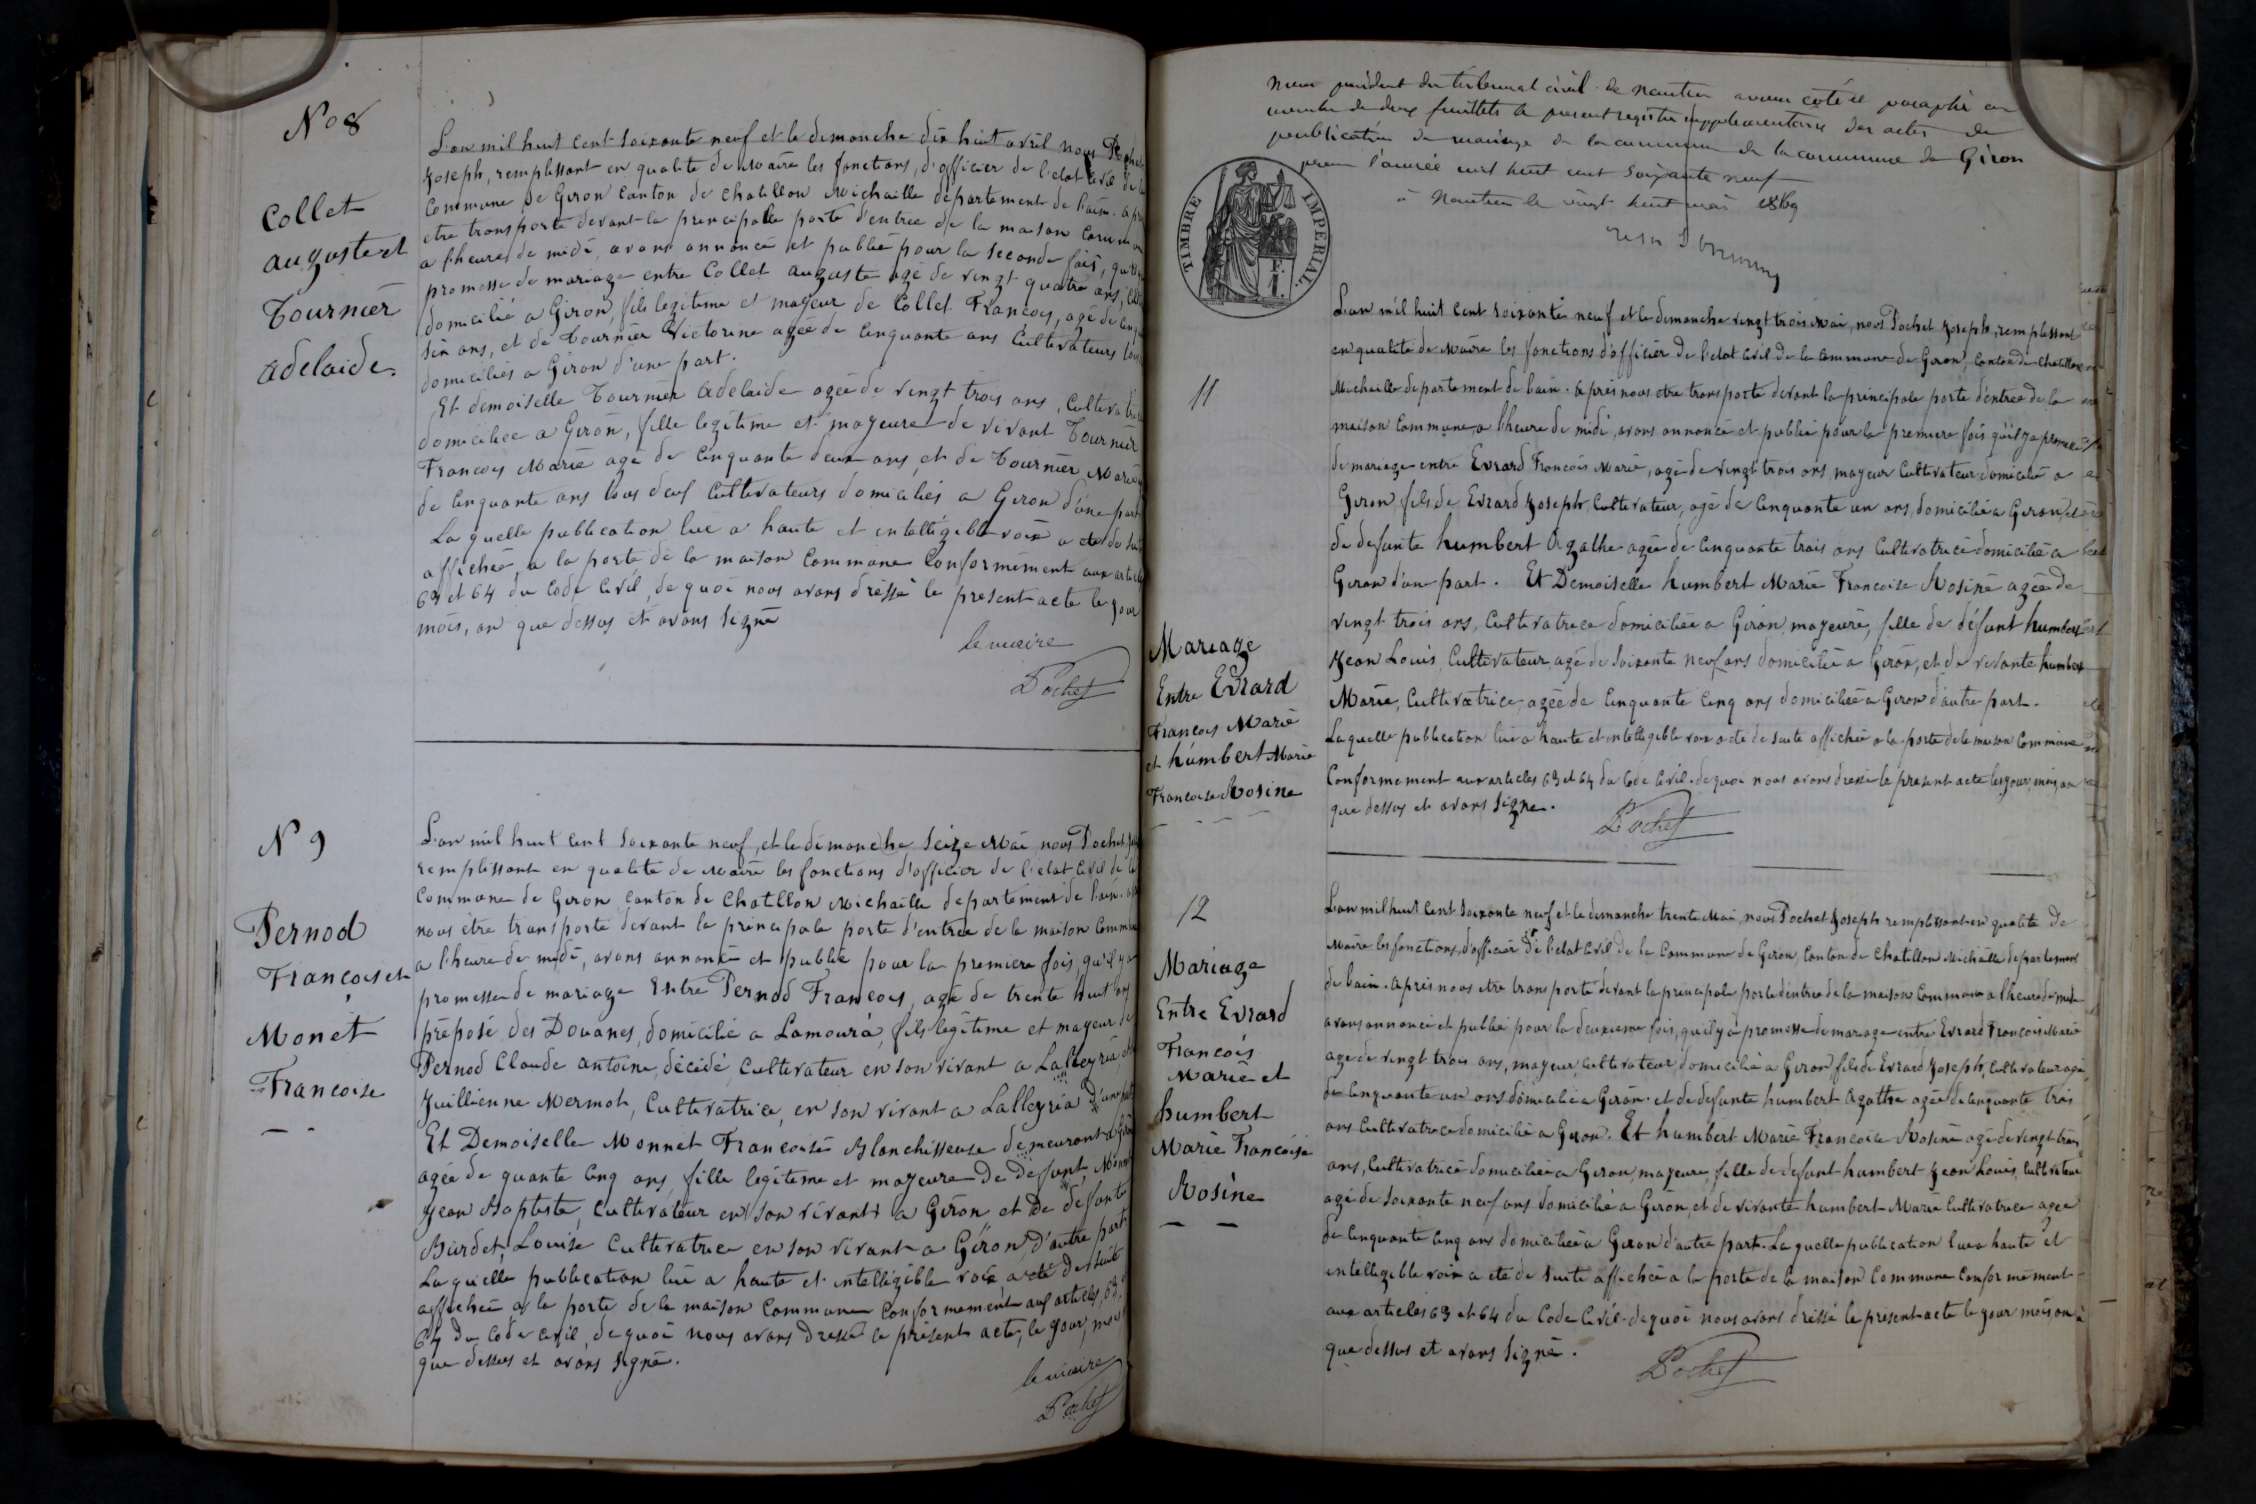 N° 8
Collet
auguste et
Tournier
adelaide.
L'an mil huit cent soixante neuf et le dimanche dix huit avril nous Pochet
Joseph, remplissant en qualité de Maire les fonctions, d'officier de l'etat civil de la
Commune de Giron canton de chatillon Michaille departement de l'ain. apres
etre transporté devant la principalle porte d'entrée de la maison Commune
a l'heure de midi, avons annoncé et publié pour la seconde fois, qu'il y a
promesse de mariage entre Collet auguste agé de vingt quatre ans,
domicilié a Giron, fils legitime et mayeur de Collet François, agé de cinquante
six ans, et de Tournier Victorine agée de cinquante ans cultivateurs tous
domiciliés a Giron d'une part.
Et demoiselle Tournier adelaide agée de vingt trois ans, cultivatrice
domiciliée a Giron, fille legitime et mayeure de vivant Tournier
Francois Marie agé de cinquante deux ans, et de Tournier Marie
de cinquante ans tous deux cultivateurs domiciliés a Giron d'une part
La quelle publication lue a haute et intelligible voix a eté de suite
affichée a la porte de la maison Commune Conformement aux articles
63 et 64 du Code Civil, de quoi nous avons dressé le present acte le jour
mois, an que dessus et avons signé
le maire
Pochet
N 9
Pernod
François et
Monet
Francoise
L'an mil huit cent soixante neuf, et le dimanche seize Mai nous Pochet
remplissant en qualité de Maire les fonctions d'officier de l'etat civil de la
Commune de Giron canton de Chatllon Michaille departement de l'ain.
nous être transporté devant la principale porte d'entrée de la maison Commune
a l'heure de midi, avons annoncé et publié pour la premiere fois, qu'il y a
promesse de mariage Entre Pernod François, agé de trente huit ans
préposé des Douanes, domicilié a Lamoura, fils legitime et mayeur de
Pernod Claude antoine, décédé, Cultivateur en son vivant a Lalleyria,
Juillienne Mermot, Cultivatrice, en son vivant a Lalleyria d'une part
Et Demoiselle Monnet Francoise Blanchisseuse demeurant a Giron
agée de quante cinq ans, fille legitime et mayeure de defunt Monnet
Jean Baptiste, Cultivateur en son vivant a Giron et de defunte
Burdet, Louise Cultivatrice en son vivant a Giron d'autre part
La quelle publication lue a haute et intelligible voix a eté de suite
affichée a la porte de la maison Commune conformement aux articles, 63,
64 du Code civil, de quoi nous avons dressé le présent acte, le jour, mois
que dessus et avons signé.
le maire
Pochet
Nous président du tribunal civil de Nantua avons coté et paraphé au
nombre de deux feuillets le présent registre supplémentaire des actes de
publication de mariage de la commune de la commune de Giron
pour l'année mil huit cent soixante neuf
à Nantua le vingt huit mai 1869
TIMBRE IMPERIAL
11
Mariage
Entre Evrard
François Marie
et humbert Marie
Françoise Rosine
L'an mil huit cent soixante neuf et le dimanche vingt trois Mai, nous Pochet Joseph, remplissant
en qualité de Maire les fonctions d'officier de l'etat civil de la Commune de Giron, Canton de Chatillon
Michaille departement de l'ain. apres nous etre transporté devant la principale porte d'entrée de la
maison Commune, a l'heure de midi, avons annoncé et publié pour la premiere fois qu'il y a promesse
de mariage entre Evrard François Marie, agé de vingt trois ans, mayeur Cultivateur domicilié a
Giron, fils de Evrard Joseph, Cultivateur, agé de cinquante un ans, domicilié a Giron, et
de defunte humbert Agathe agée de cinquante trois ans Cultivatrice domiciliée a
Giron d'une part. Et Demoiselle humbert Marie Françoise Rosine agée de
vingt trois ans, Cultivatrice domiciliée a Giron, mayeure, fille de défunt humbert
Jean Louis, Cultivateur, agé de soixante neuf ans domicilié a Giron, et de vivante humbert
Marie, Cultivatrice, agée de cinquante cinq ans domiciliée a Giron d'autre part.
La quelle publication lue a haute et intelligible voix a eté de suite affichée a la porte de la maison Commune
Conformement aux articles 63 et 64 du Code Civil. de quoi nous avons dressé le present acte les jour, mois, an
que dessus et avons signe.
Pochet
12
Mariage
Entre Evrard
François
Marie et
humbert
Marie Françoise
Rosine
L'an mil huit Cent soixante neuf et le dimanche trente Mai, nous Pochet Joseph remplissant en qualité de
Maire les fonctions, d'officier de l'etat civil de la Commune de Giron, Canton de Chatillon Michaille departement
de l'ain. apres nous etre transporté devant la principale porte d'entrée de la maison Commune a l'heure de midi
avons annoncé et publié pour la deuxieme fois, qu'il y a promesse de mariage entre Evrard François Marie
agé de vingt trois ans, mayeur, Cultivateur domicilié a Giron fils de Evrard Joseph, Cultivateur agé
de cinquante un ans domicilié a Giron. et de defunte humbert Agathe agée de cinquante trois
ans Cultivatrice domiciliée a Giron. Et humbert Marie Françoise Rosine agé de vingt trois
ans, Cultivatrice domiciliée a Giron, mayeure, fille de defunt humbert Jean Louis, Cultivateur
agé de soixante neuf ans domicilié a Giron, et de vivante humbert Marie Cultivatrice agée
de cinquante cinq ans domiciliée a Giron d'autre part. La quelle publication lue a haute et
intelligible voix a eté de suite affichée a la porte de la maison Commune conformement
aux articles 63 et 64 du Code Civil. de quoi nous avons dressé le present acte le jour mois an
que dessus et avons signé.
Pochet